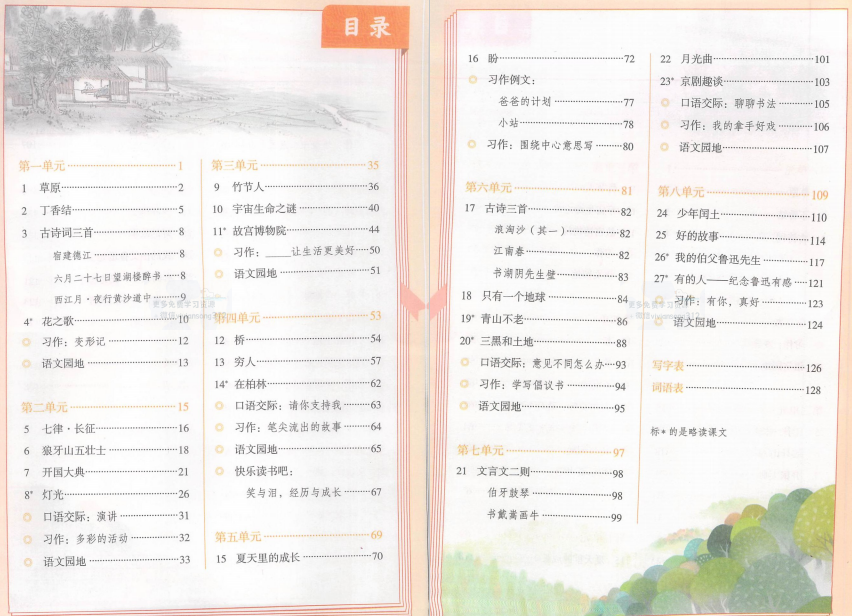 目录
第一单元 1
1 草原 2
2 丁香结 5
3 古诗词三首 8
宿建德江 8
六月二十七日望湖楼醉书 8
西江月·夜行黄沙道中 9
4* 花之歌 10
习作：变形记 12
语文园地 13
第二单元 15
5 七律·长征 16
6 狼牙山五壮士 18
7 开国大典 21
8* 灯光 26
口语交际：演讲 31
习作：多彩的活动 32
语文园地 33
第三单元 35
9 竹节人 36
10 宇宙生命之谜 40
11* 故宫博物院 44
习作：____让生活更美好 50
语文园地 51
第四单元 53
12 桥 54
13 穷人 57
14* 在柏林 62
口语交际：请你支持我 63
习作：笔尖流出的故事 64
语文园地 65
快乐读书吧：
笑与泪，经历与成长 67
第五单元 69
15 夏天里的成长 70
16 盼 72
习作例文：
爸爸的计划 77
小站 78
习作：围绕中心意思写 80
第六单元 81
17 古诗三首 82
浪淘沙（其一） 82
江南春 82
书湖阴先生壁 83
18 只有一个地球 84
19* 青山不老 86
20* 三黑和土地 88
口语交际：意见不同怎么办 93
习作：学写倡议书 94
语文园地 95
第七单元 97
21 文言文二则 98
伯牙鼓琴 98
书戴嵩画牛 99
22 月光曲 101
23* 京剧趣谈 103
口语交际：聊聊书法 105
习作：我的拿手好戏 106
语文园地 107
第八单元 109
24 少年闰土 110
25 好的故事 114
26* 我的伯父鲁迅先生 117
27* 有的人——纪念鲁迅有感 121
习作：有你，真好 123
语文园地 124
写字表 126
词语表 128
标*的是略读课文